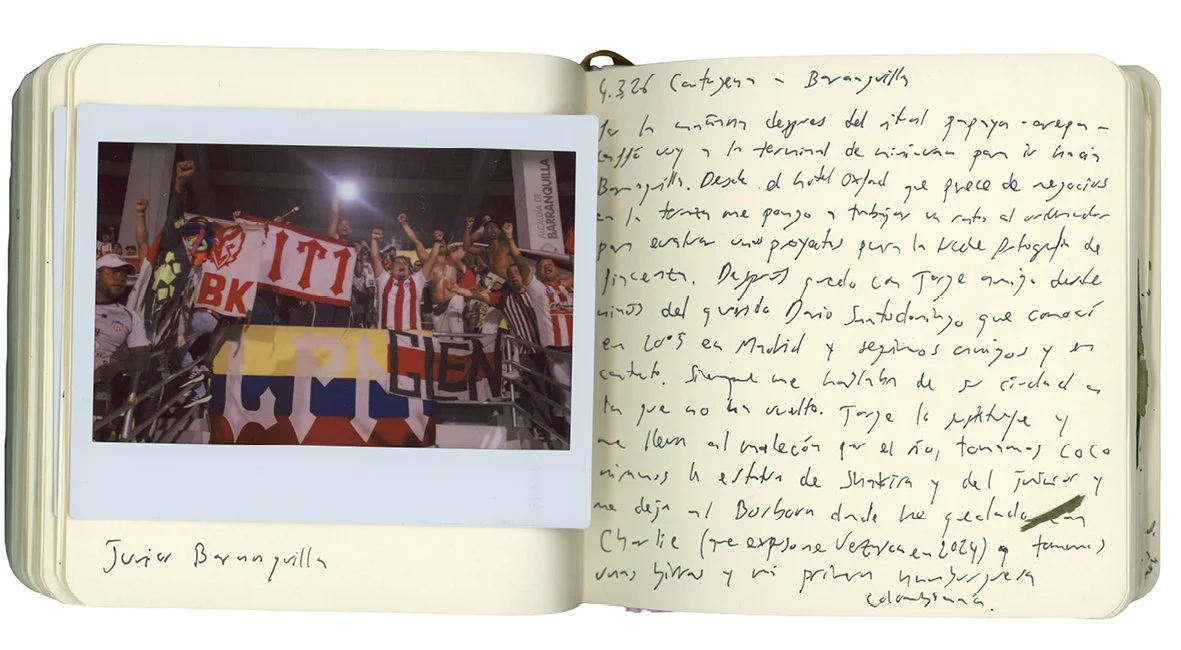 ALCALDÍA DE
BARRANQUILLA
ITI
BK
GIEN
LPM
Junior Barranquilla
4.3.26 Cartagena - Barranquilla
Por la mañana despues del ritual papaya-arepa-
caffé voy a la terminal de minivan para ir hacia
Barranquilla. Desde el hotel Oxford que parece de negocios
en la terraza me pongo a trabajar un rato al ordenador
para evaluar unos proyectos para la de fotografia de
. Despues quedo con Jorge amigo desde
niños del querido Dario Santodomingo que conocí
en 2005 en Madrid y seguimos amigos y en
contacto. Siempre me hablaba de su ciudad en
la que no ha vuelto. Jorge lo sustituye y
me lleva al malecón por el río, tomamos coco
miramos la estatua de Shakira y del junior y
me deja al Barbara donde he quedado con
Charlie (que expone en 2024) y tomamos
unas birras y mi primera hamburguesa
colombiana.